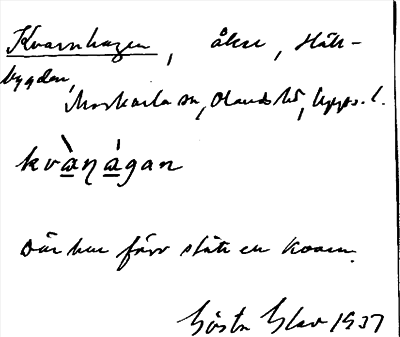 Kvarnhagen, åker, Slätt-
bygden,
Morkarla sn, Olands hd, Upps. l.
kvàṉágan
Där har förr stått en kvarn.
Gösta Elov 1937